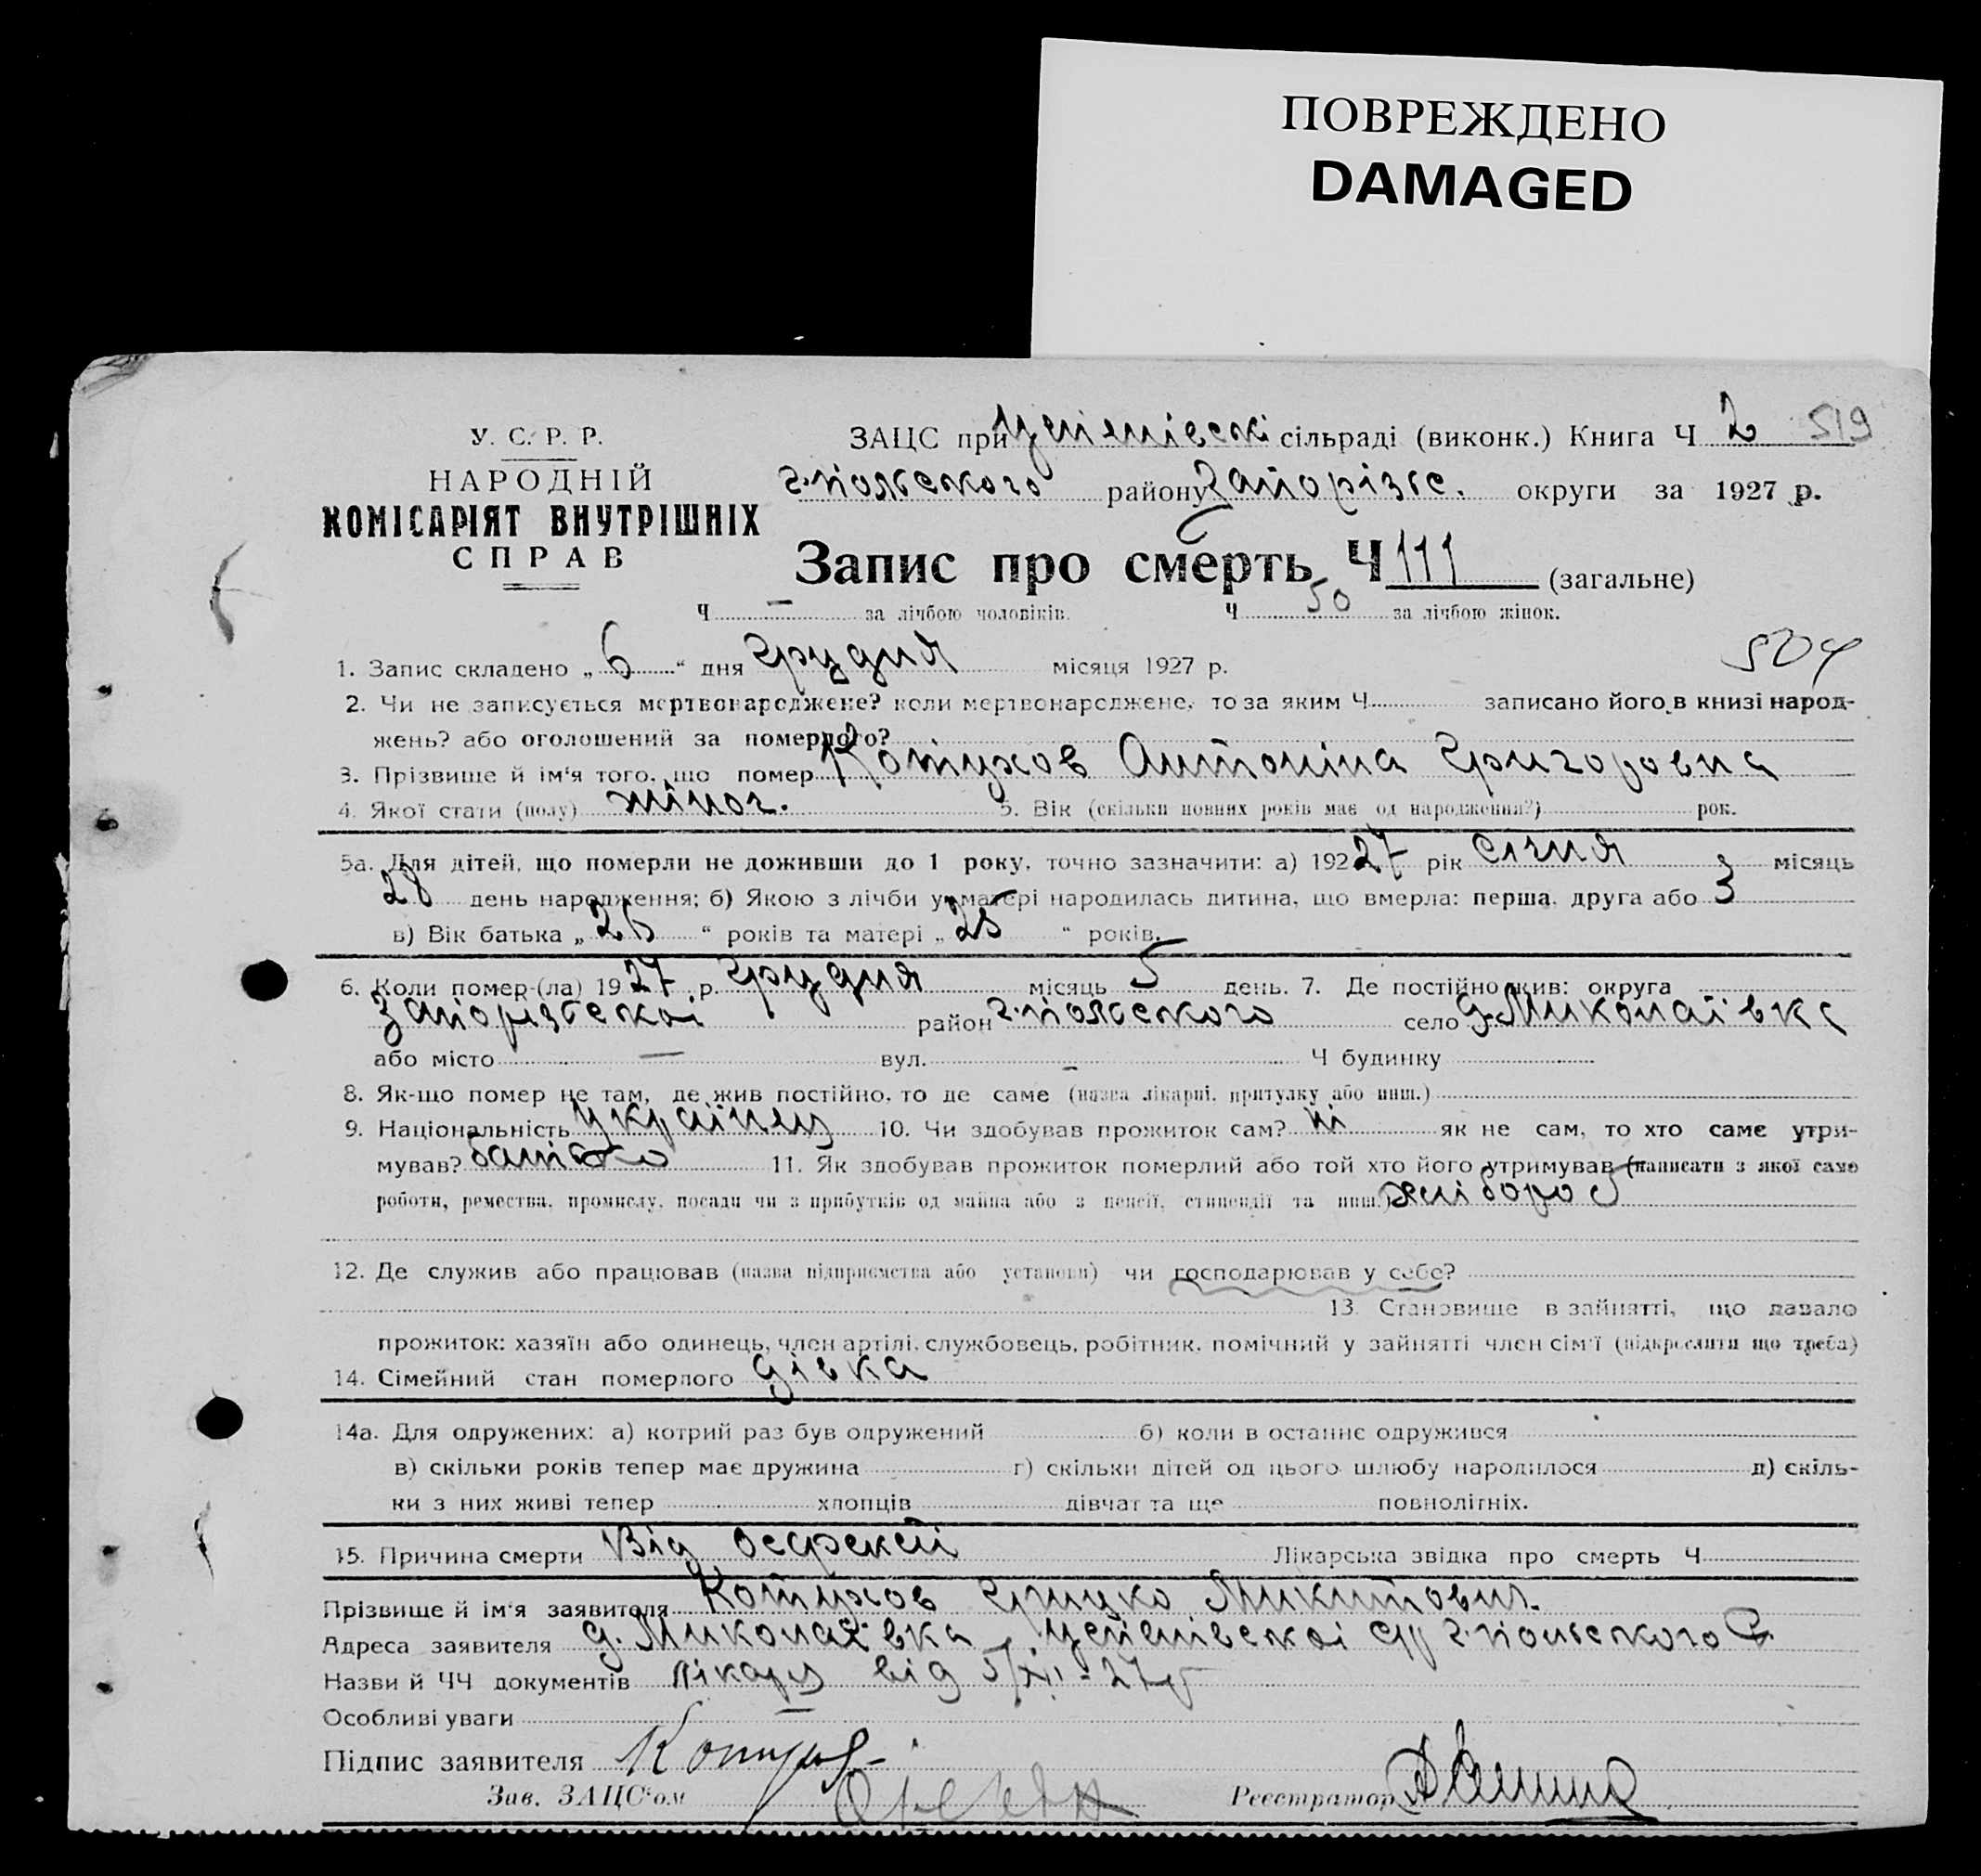 ПОВРЕЖДЕНО
DAMAGED
У. С. Р. Р.
НАРОДНІЙ
КОМІСАРІЯТ ВНУТРІШНІХ
СПРАВ
ЗАЦС при сільраді (виконк.) Книга Ч 2 519
г.польского району Запорізьк. округи за 1927 р.
Запис про смерть Ч 111 (загальне)
Ч – за лічбою чоловіків. Ч 50 за лічбою жінок.
504
1. Запис складено „ 6 “ дня Грудня місяця 1927 р.
2. Чи не записується мертвонароджене? коли мертвонароджене, то за яким Ч записано його в книзі народ-
жень? або оголошений за померлого?
3. Прізвище й ім'я того, що помер Котухов Антоніна Григоровна
4. Якої стати (полу) жіноч. 5. Вік (скільки повних років має од народження?) рок.
5а. Для дітей, що померли не доживши до 1 року, точно зазначити: а) 192 27 рік січня 3 місяць
28 день народження; б) Якою з лічби у матері народилась дитина, що вмерла: перша, друга або
в) Вік батька „ 26 “ років та матері „ 25 “ років.
6. Коли помер-(ла) 19 27 р. Грудня місяць 5 день. 7. Де постійно жив: округа
Запорізської район г.польского село д.Миколаївка
або місто – вул. – Ч будинку
8. Як-що помер не там, де жив постійно, то де саме (назва лікарні, притулку або инш.)
9. Національність українец 10. Чи здобував прожиток сам? ні як не сам, то хто саме утри-
мував? батько 11. Як здобував прожиток померлий або той хто його утримував (написати з якої саме
роботи, ремества, промислу, посади чи з прибутків од майна або з пенсії, стипендії та инш.) хлібороб
12. Де служив або працював (назва підприємства або установи) чи господарював у себе?
13. Становище в зайнятті, що давало
прожиток: хазяїн або одинець, член артілі, службовець, робітник, помічний у зайнятті член сім'ї (підкреслити що треба)
14. Сімейний стан померлого дівка
14а. Для одружених: а) котрий раз був одружений б) коли в останнє одружився
в) скільки років тепер має дружина г) скільки дітей од цього шлюбу народилося д) скіль-
ки з них живі тепер хлопців дівчат та ще повнолітніх.
15. Причина смерти Від Лікарська звідка про смерть Ч
Прізвище й ім'я заявителя Котухов Грицко Микитович.
Адреса заявителя д. Миколаївка г.польського
Назви й ЧЧ документів лікаря від 5/XII-27р
Особливі уваги –
Підпис заявителя
Зав. ЗАЦС'ом Реєстратор